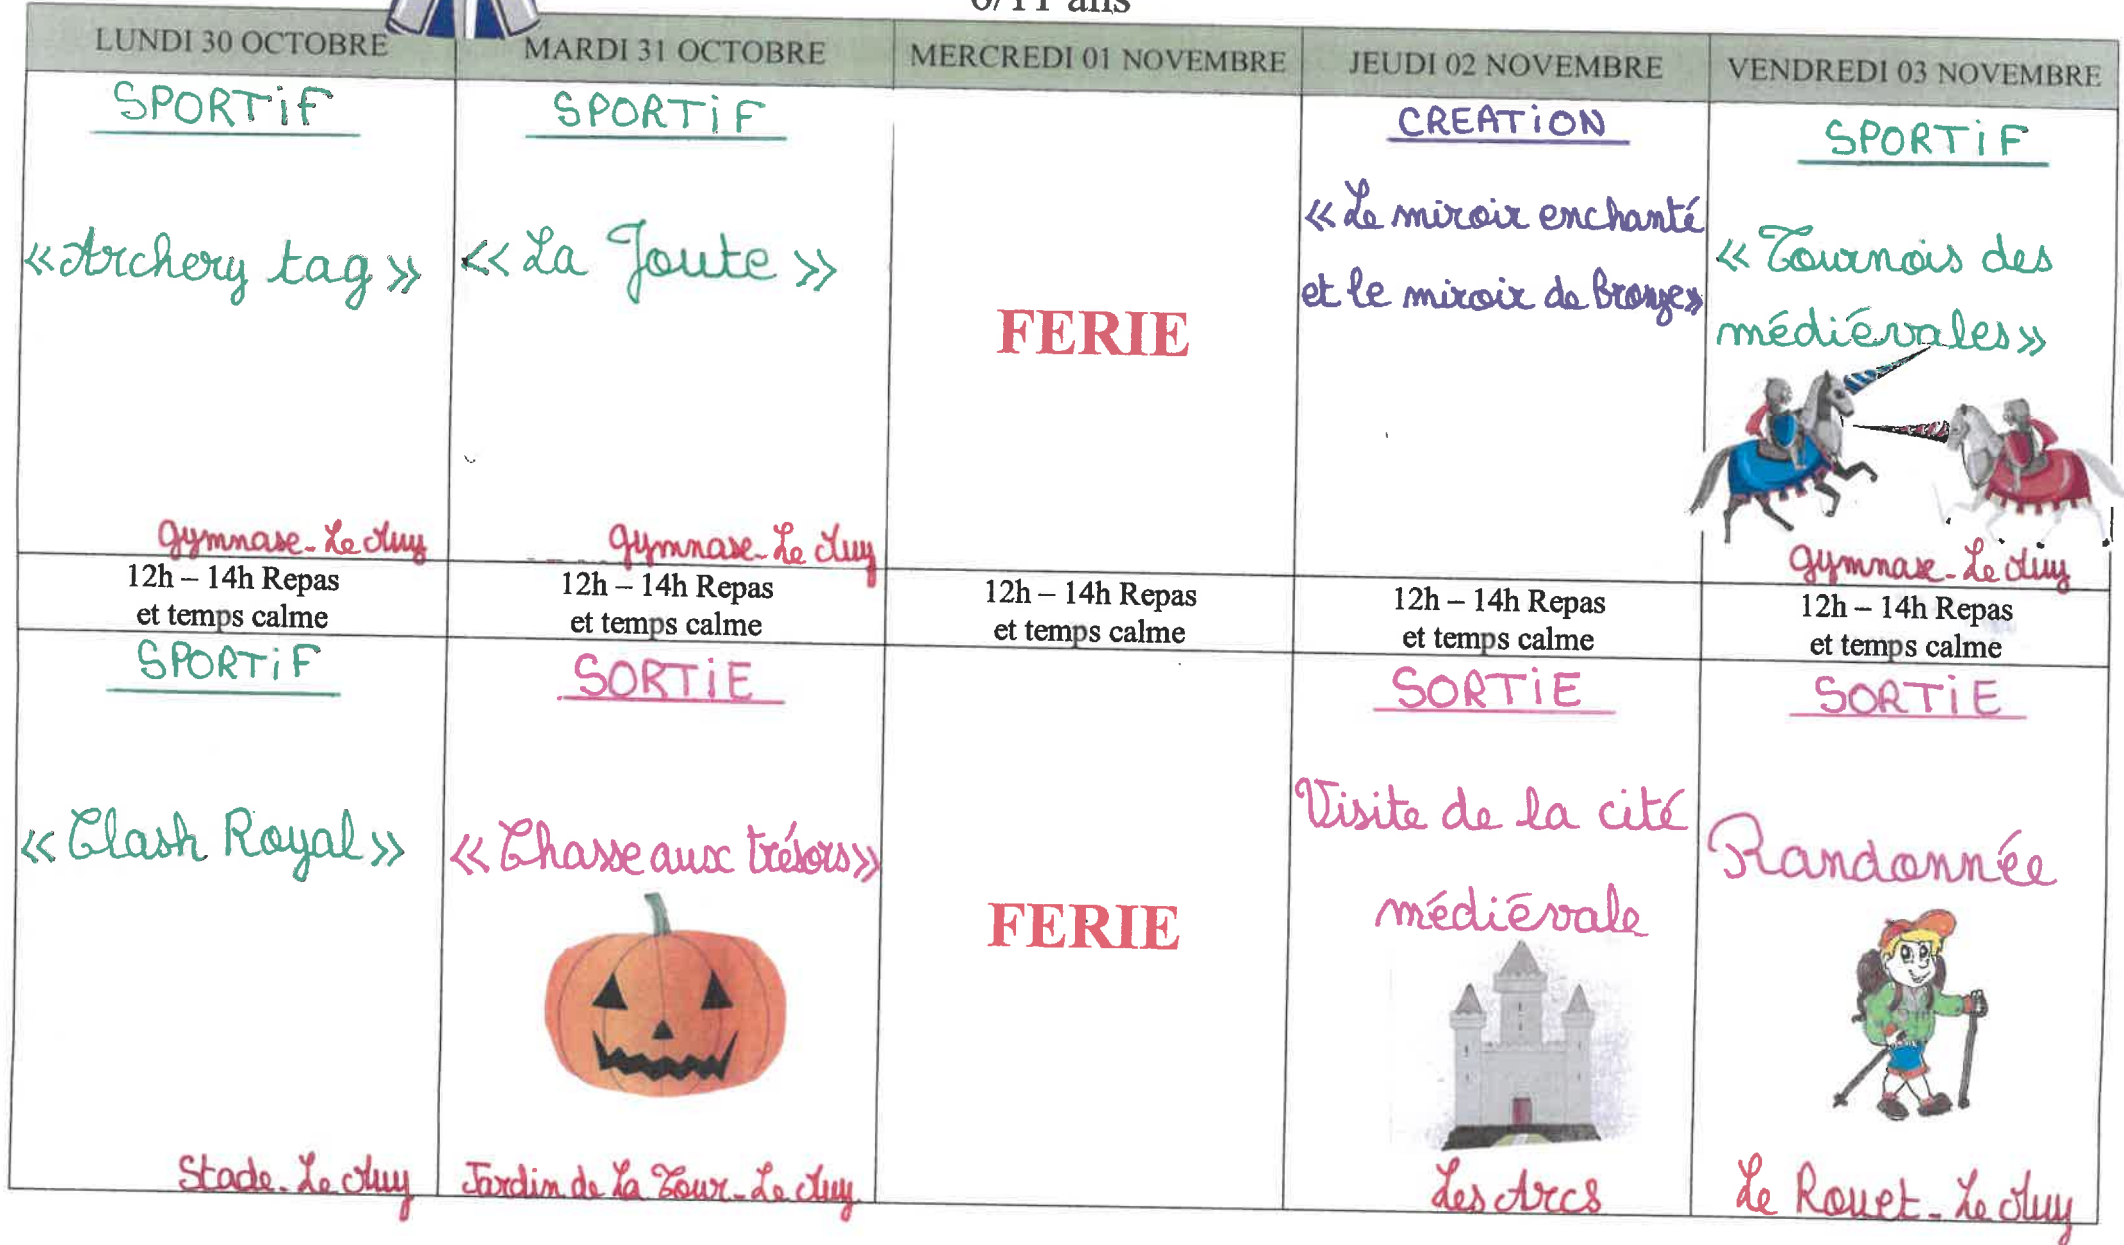 6/11 ans
LUNDI 30 OCTOBRE
MARDI 31 OCTOBRE
MERCREDI 01 NOVEMBRE
JEUDI 02 NOVEMBRE
VENDREDI 03 NOVEMBRE
SPORTiF
«Archery tag»
Gymnase - Le Muy
SPORTiF
«La Joute»
Gymnase - Le Muy
FERIE
CREATiON
«Le miroir enchanté
et le miroir de bronze»
SPORTiF
«Tournois des
médiévales»
Gymnase - Le Muy
12h – 14h Repas
et temps calme
12h – 14h Repas
et temps calme
12h – 14h Repas
et temps calme
12h – 14h Repas
et temps calme
12h – 14h Repas
et temps calme
SPORTiF
«Clash Royal»
Stade - Le Muy
SORTiE
«Chasse aux trésors»
Jardin de La Tour - Le Muy
FERIE
SORTiE
Visite de la cité
médiévale
Les Arcs
SORTiE
Randonnée
Le Rouet - Le Muy